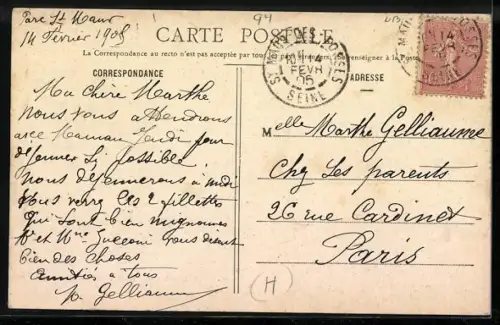 94
CARTE POSTALE
La Correspondance au recto n'est pas acceptée par tous
renseigner à la Poste
CORRESPONDANCE
ADRESSE
ST MAUR DES FOSSES
14
FEVR
05
SEINE
Parc St Maur
14 Février 1905
Ma chère Marthe
Nous vous attendrons
avec Maman Jeudi pour
déjeuner si possible.
nous déjeunerons à midi
vous verrez les 2 fillettes
qui sont bien mignonnes
Mr et Mme vous disent
bien des choses
Amitiés à tous
p. Gelliaume
Melle Marthe Gelliaume
Chez Ses parents
26 rue Cardinet
Paris
H